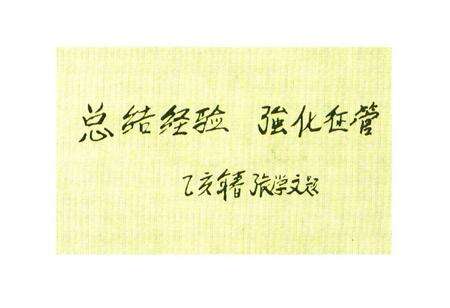 总结经验 強化征管
乙亥年春 张学文题